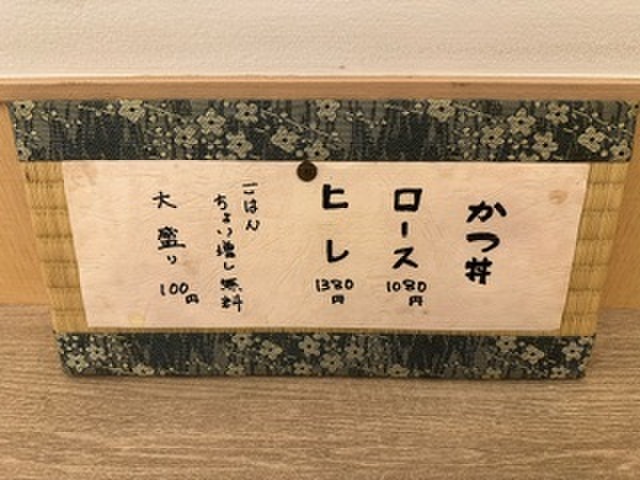 かつ丼
ロース 1080円
ヒレ 1380円
ごはん
ちょい増し無料
大盛り 100円